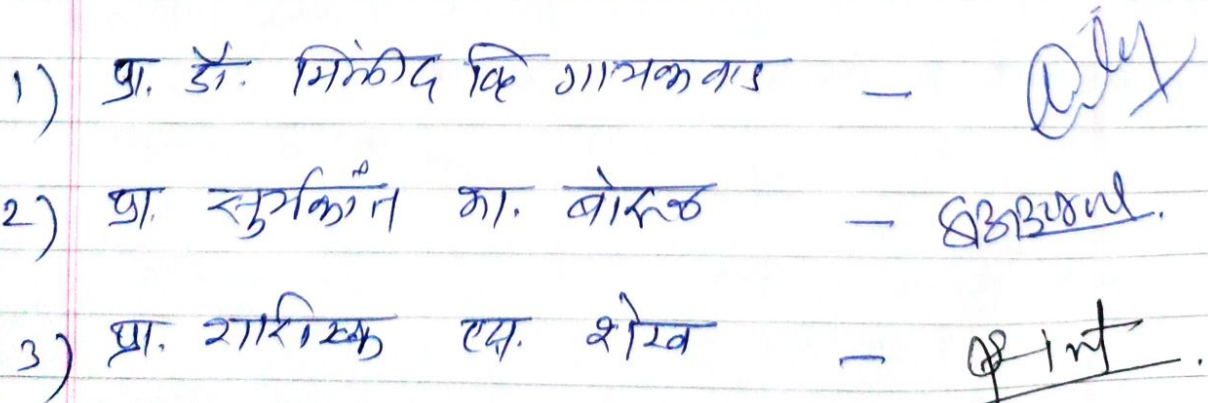 1) प्रा. डॉ. मिलींद वि गायकवाड -
2) प्रा. सुर्यकांत का. बोरुळ -
3) प्रा. एस. शेख -